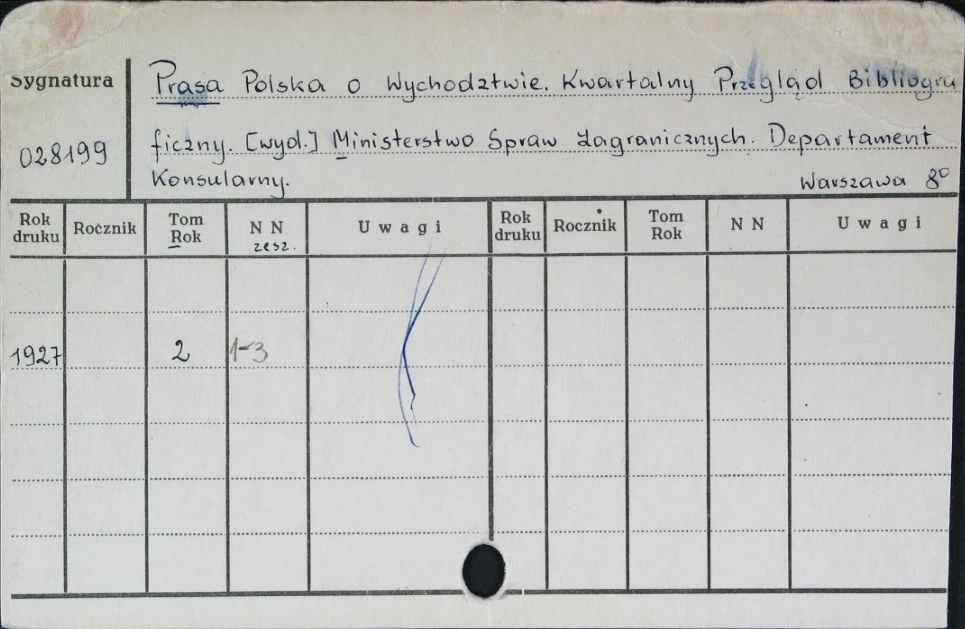 Sygnatura
028199
Prasa Polska o Wychodztwie. Kwartalny Przegląd Bibliogra
ficzny. [wyd.] Ministerstwo Spraw Zagranicznych. Departament
Konsularny.
Warszawa 8°
Rok druku Rocznik Tom Rok N N zesz. Uwagi Rok druku Rocznik Tom Rok N N Uwagi
1927 2 1-3